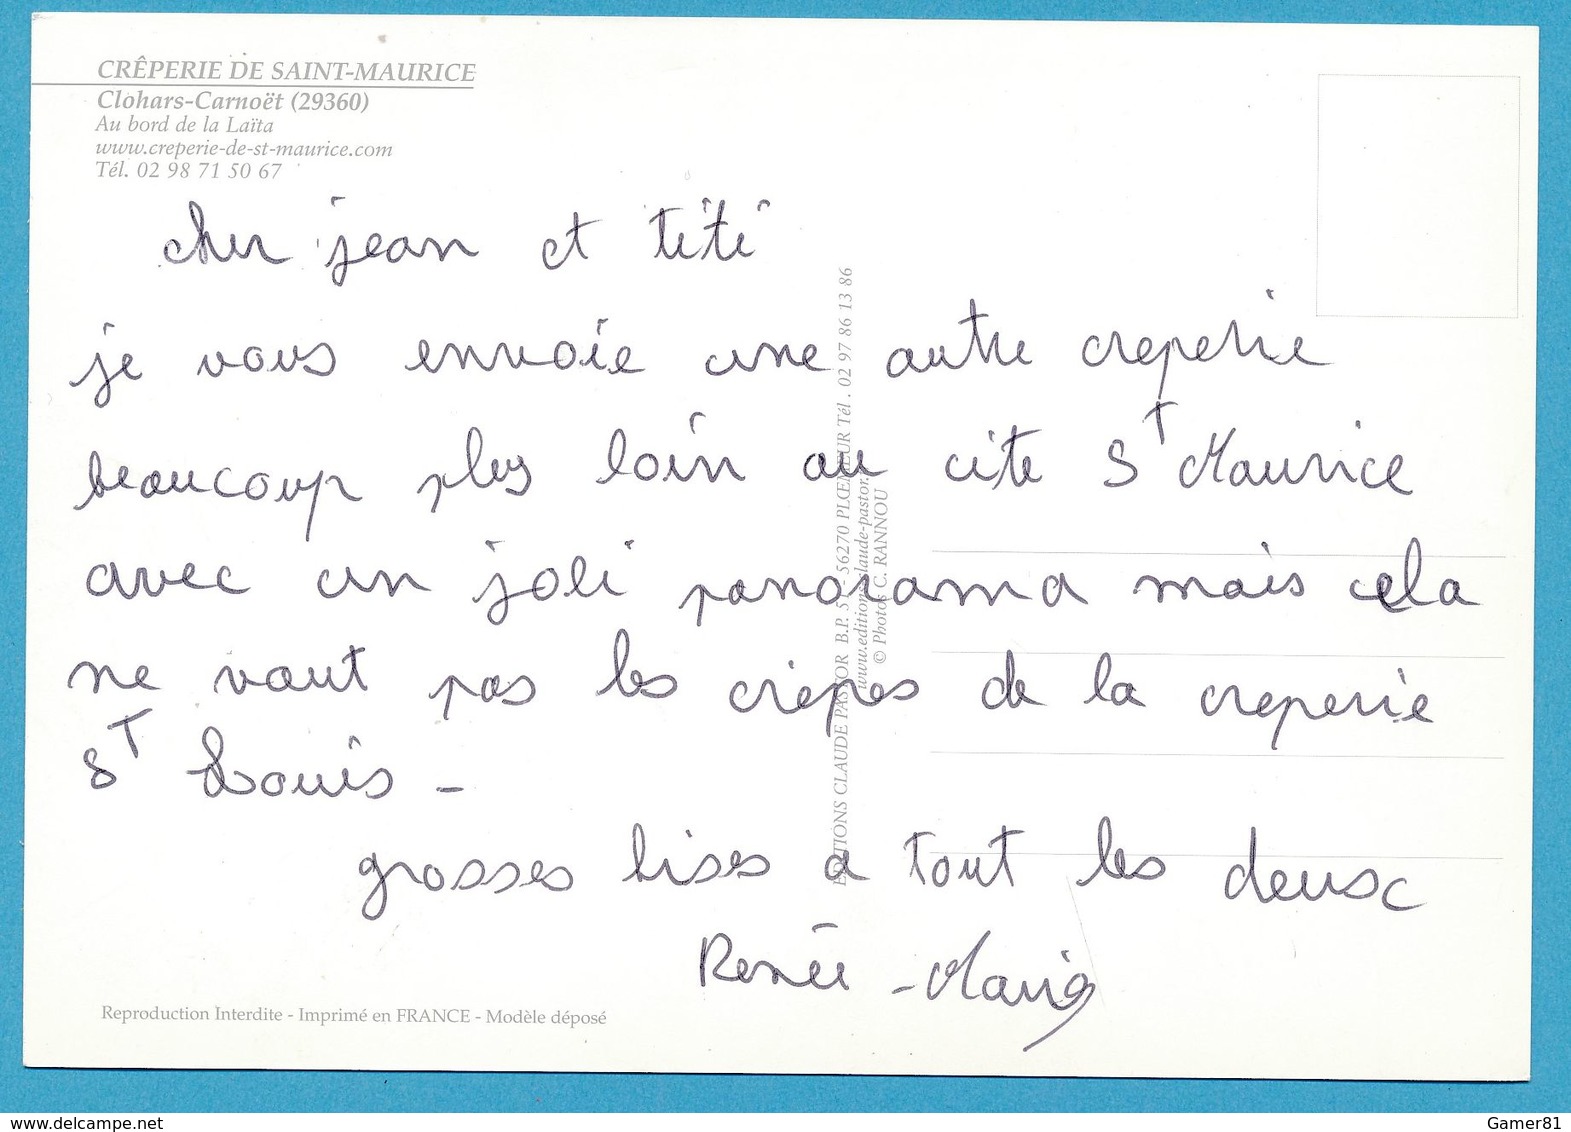 CRÊPERIE DE SAINT-MAURICE
Clohars-Carnoët (29360)
Au bord de la Laïta
www.creperie-de-st-maurice.com
Tél. 02 98 71 50 67
cher jean et titi
je vous envoie une autre creperie
beaucoup plus loin au cite St Maurice
avec un joli panorama mais cela
ne vaut pas les crepes de la creperie
St Louis -
grosses bises a tout les deux
Renée - Marie
EDITIONS CLAUDE PASTOR B.P. 51 - 56270 PLŒMEUR Tél. 02 97 86 13 86
www.editions-claude-pastor.
© Photos C. RANNOU
Reproduction Interdite - Imprimé en FRANCE - Modèle déposé
www.delcampe.net
Gamer81